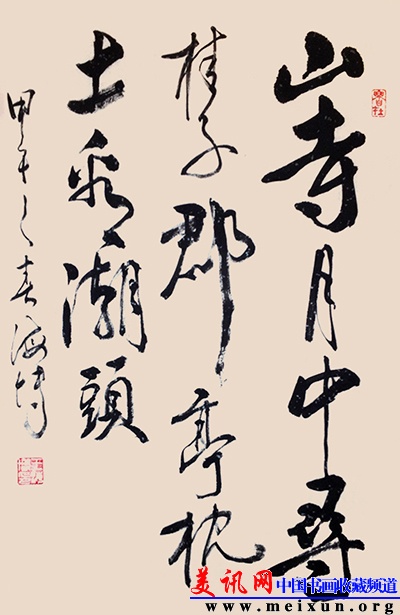 山寺月中尋
桂子郡亭枕
上看潮頭
甲午之春海
美讯网 中国书画收藏频道
www.meixun.org